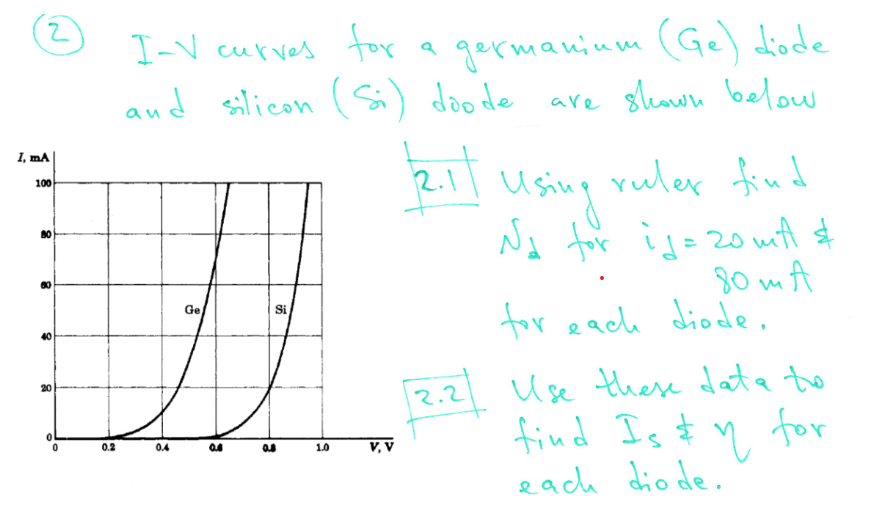 2
I-V curves for a germanium (Ge) diode
and silicon (Si) doode are shown below
I, mA
100
80
60
40
20
0
Ge
Si
0 0.2 0.4 0.6 0.8 1.0 V, V
2.1 Using ruler find
Vd for id = 20 mA &
80 mA
for each diode.
2.2 Use these data to
find Is & η for
each diode.